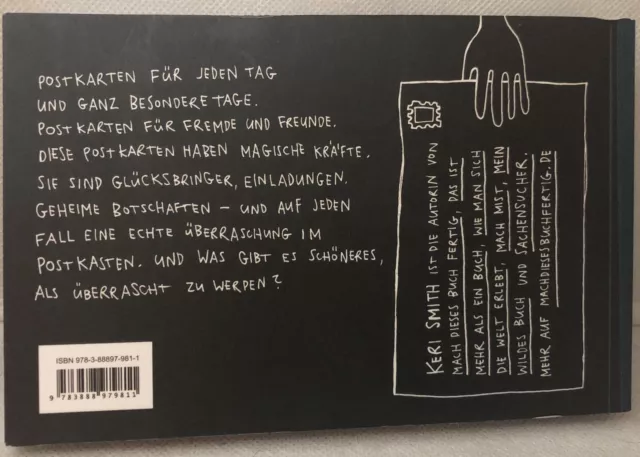 POSTKARTEN FÜR JEDEN TAG
UND GANZ BESONDERE TAGE.
POSTKARTEN FÜR FREMDE UND FREUNDE.
DIESE POSTKARTEN HABEN MAGISCHE KRÄFTE.
SIE SIND GLÜCKSBRINGER, EINLADUNGEN.
GEHEIME BOTSCHAFTEN – UND AUF JEDEN
FALL EINE ECHTE ÜBERRASCHUNG IM
POSTKASTEN. UND WAS GIBT ES SCHÖNERES,
ALS ÜBERRASCHT ZU WERDEN?
KERI SMITH IST DIE AUTORIN VON
MACH DIESES BUCH FERTIG, DAS IST
MEHR ALS EIN BUCH, WIE MAN SICH
DIE WELT ERLEBT, MACH MIST, MEIN
WILDES BUCH UND SACHENSUCHER.
MEHR AUF MACHDIESESBUCHFERTIG.DE
ISBN 978-3-88897-981-1
9 783888 979811